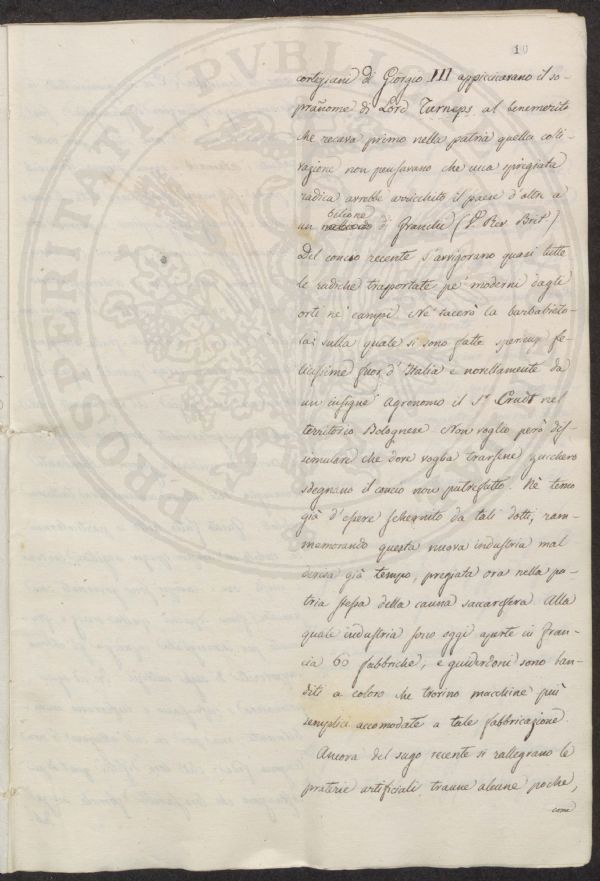 10
cortegiani di Giorgio III appiccicarano il so-
prañome di Lord Turneps al benemerito
che recava primo nella patria quella colti-
vazione non pensavano che una spregiata
radica avrebbe arricchito il paese d'oltre a
bilione
un di Franchi (Vº Rev Brit.)
Del concio recente s'avvigorano quasi tutte
le radiche trasportate pe' moderni dagli
orti ne' campi. Nè tacerò la barbabieto-
la: sulla quale si sono fatte sperienze fe-
licissime fuor d'Italia e novellamente da
un insigne Agronomo il Sr. Crud nel
territorio Bolognese. Non voglio però dis-
simulare che dove voglia trarsene zucchero
sdegnano il concio non putrefatto. Nè temo
già d'essere schernito da tali dotti, ram-
memorando questa nuova industria mal
derisa già tempo, pregiata ora nella pa-
tria stessa della canna saccarifera. Alla
quale industria sono oggi aperte in Fran-
cia 60 fabbriche, e guiderdoni sono ban-
diti a coloro che trovino macchine più
semplici accomodate a tale fabbricazione.
Ancora del sugo recente si rallegrano le
praterie artificiali, tranne alcune poche,
come
PROSPERITATI PVBLICAE